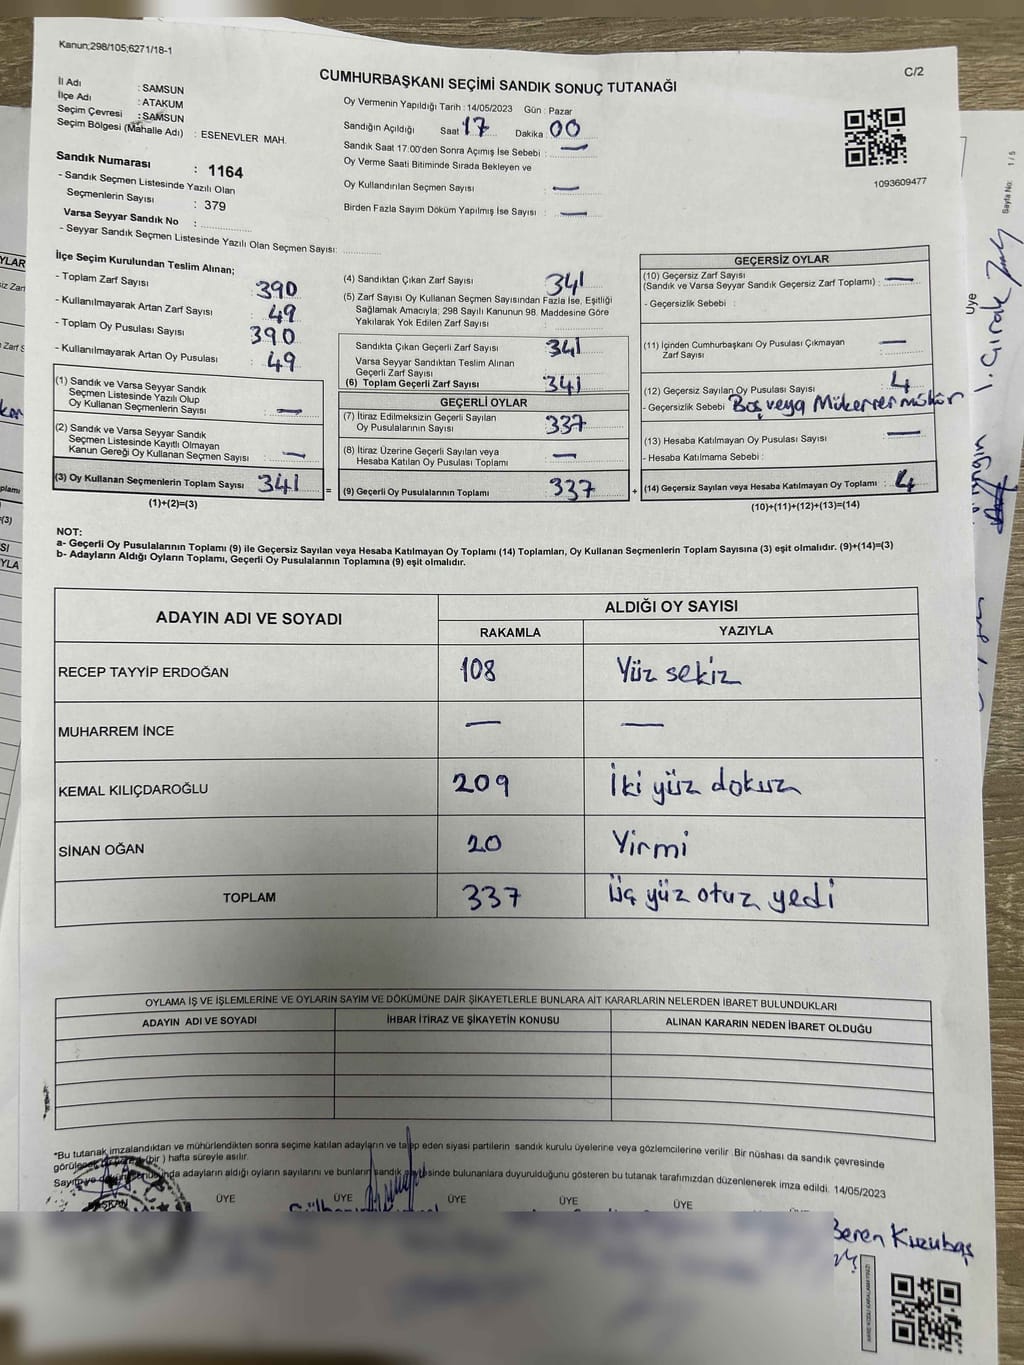 Kanun;298/105;6271/18-1
C/2
CUMHURBAŞKANI SEÇİMİ SANDIK SONUÇ TUTANAĞI
İl Adı : SAMSUN
İlçe Adı : ATAKUM
Seçim Çevresi : SAMSUN
Seçim Bölgesi (Mahalle Adı) : ESENEVLER MAH.
Sandık Numarası : 1164
- Sandık Seçmen Listesinde Yazılı Olan
Seçmenlerin Sayısı : 379
Varsa Seyyar Sandık No :
- Seyyar Sandık Seçmen Listesinde Yazılı Olan Seçmen Sayısı:
Oy Vermenin Yapıldığı Tarih : 14/05/2023 Gün : Pazar
Sandığın Açıldığı Saat 17 Dakika 00
Sandık Saat 17:00'den Sonra Açımış İse Sebebi : —
Oy Verme Saati Bitiminde Sırada Bekleyen ve
Oy Kullandırılan Seçmen Sayısı : —
Birden Fazla Sayım Döküm Yapılmış İse Sayısı : —
1093609477
Sayfa No: 1 / 5
İlçe Seçim Kurulundan Teslim Alınan;
- Toplam Zarf Sayısı : 390
- Kullanılmayarak Artan Zarf Sayısı : 49
- Toplam Oy Pusulası Sayısı : 390
- Kullanılmayarak Artan Oy Pusulası : 49
(1) Sandık ve Varsa Seyyar Sandık
Seçmen Listesinde Yazılı Olup
Oy Kullanan Seçmenlerin Sayısı : —
(2) Sandık ve Varsa Seyyar Sandık
Seçmen Listesinde Kayıtlı Olmayan
Kanun Gereği Oy Kullanan Seçmen Sayısı : —
(3) Oy Kullanan Seçmenlerin Toplam Sayısı : 341
(1)+(2)=(3)
(4) Sandıktan Çıkan Zarf Sayısı : 341
(5) Zarf Sayısı Oy Kullanan Seçmen Sayısından Fazla İse, Eşitliği
Sağlamak Amacıyla; 298 Sayılı Kanunun 98. Maddesine Göre
Yakılarak Yok Edilen Zarf Sayısı :
Sandıkta Çıkan Geçerli Zarf Sayısı : 341
Varsa Seyyar Sandıktan Teslim Alınan
Geçerli Zarf Sayısı :
(6) Toplam Geçerli Zarf Sayısı : 341
GEÇERLİ OYLAR
(7) İtiraz Edilmeksizin Geçerli Sayılan
Oy Pusulalarının Sayısı : 337
(8) İtiraz Üzerine Geçerli Sayılan veya
Hesaba Katılan Oy Pusulası Toplamı : —
= (9) Geçerli Oy Pusulalarının Toplamı : 337
GEÇERSİZ OYLAR
(10) Geçersiz Zarf Sayısı
(Sandık ve Varsa Seyyar Sandık Geçersiz Zarf Toplamı) : —
- Geçersizlik Sebebi :
(11) İçinden Cumhurbaşkanı Oy Pusulası Çıkmayan
Zarf Sayısı : —
(12) Geçersiz Sayılan Oy Pusulası Sayısı : 4
- Geçersizlik Sebebi : Boş veya Mükerrer mühür
(13) Hesaba Katılmayan Oy Pusulası Sayısı : —
- Hesaba Katılmama Sebebi :
+ (14) Geçersiz Sayılan veya Hesaba Katılmayan Oy Toplamı : 4
(10)+(11)+(12)+(13)=(14)
Üye
NOT:
a- Geçerli Oy Pusulalarının Toplamı (9) ile Geçersiz Sayılan veya Hesaba Katılmayan Oy Toplamı (14) Toplamları, Oy Kullanan Seçmenlerin Toplam Sayısına (3) eşit olmalıdır. (9)+(14)=(3)
b- Adayların Aldığı Oyların Toplamı, Geçerli Oy Pusulalarının Toplamına (9) eşit olmalıdır.
ADAYIN ADI VE SOYADI
ALDIĞI OY SAYISI
RAKAMLA YAZIYLA
RECEP TAYYİP ERDOĞAN 108 Yüz sekiz
MUHARREM İNCE — —
KEMAL KILIÇDAROĞLU 209 İki yüz dokuz
SİNAN OĞAN 20 Yirmi
TOPLAM 337 Üç yüz otuz yedi
OYLAMA İŞ VE İŞLEMLERİNE VE OYLARIN SAYIM VE DÖKÜMÜNE DAİR ŞİKAYETLERLE BUNLARA AİT KARARLARIN NELERDEN İBARET BULUNDUKLARI
ADAYIN ADI VE SOYADI İHBAR İTİRAZ VE ŞİKAYETİN KONUSU ALINAN KARARIN NEDEN İBARET OLDUĞU
*Bu tutanak imzalandıktan ve mühürlendikten sonra seçime katılan adayların ve talep eden siyasi partilerin sandık kurulu üyelerine veya gözlemcilerine verilir. Bir nüshası da sandık çevresinde
(bir) hafta süreyle asılır.
adayların aldığı oyların sayılarını ve bunların sandık bulunanlara duyurulduğunu gösteren bu tutanak tarafımızdan düzenlenerek imza edildi. 14/05/2023
BAŞKAN ÜYE ÜYE ÜYE ÜYE ÜYE
Beren Kuzubaş